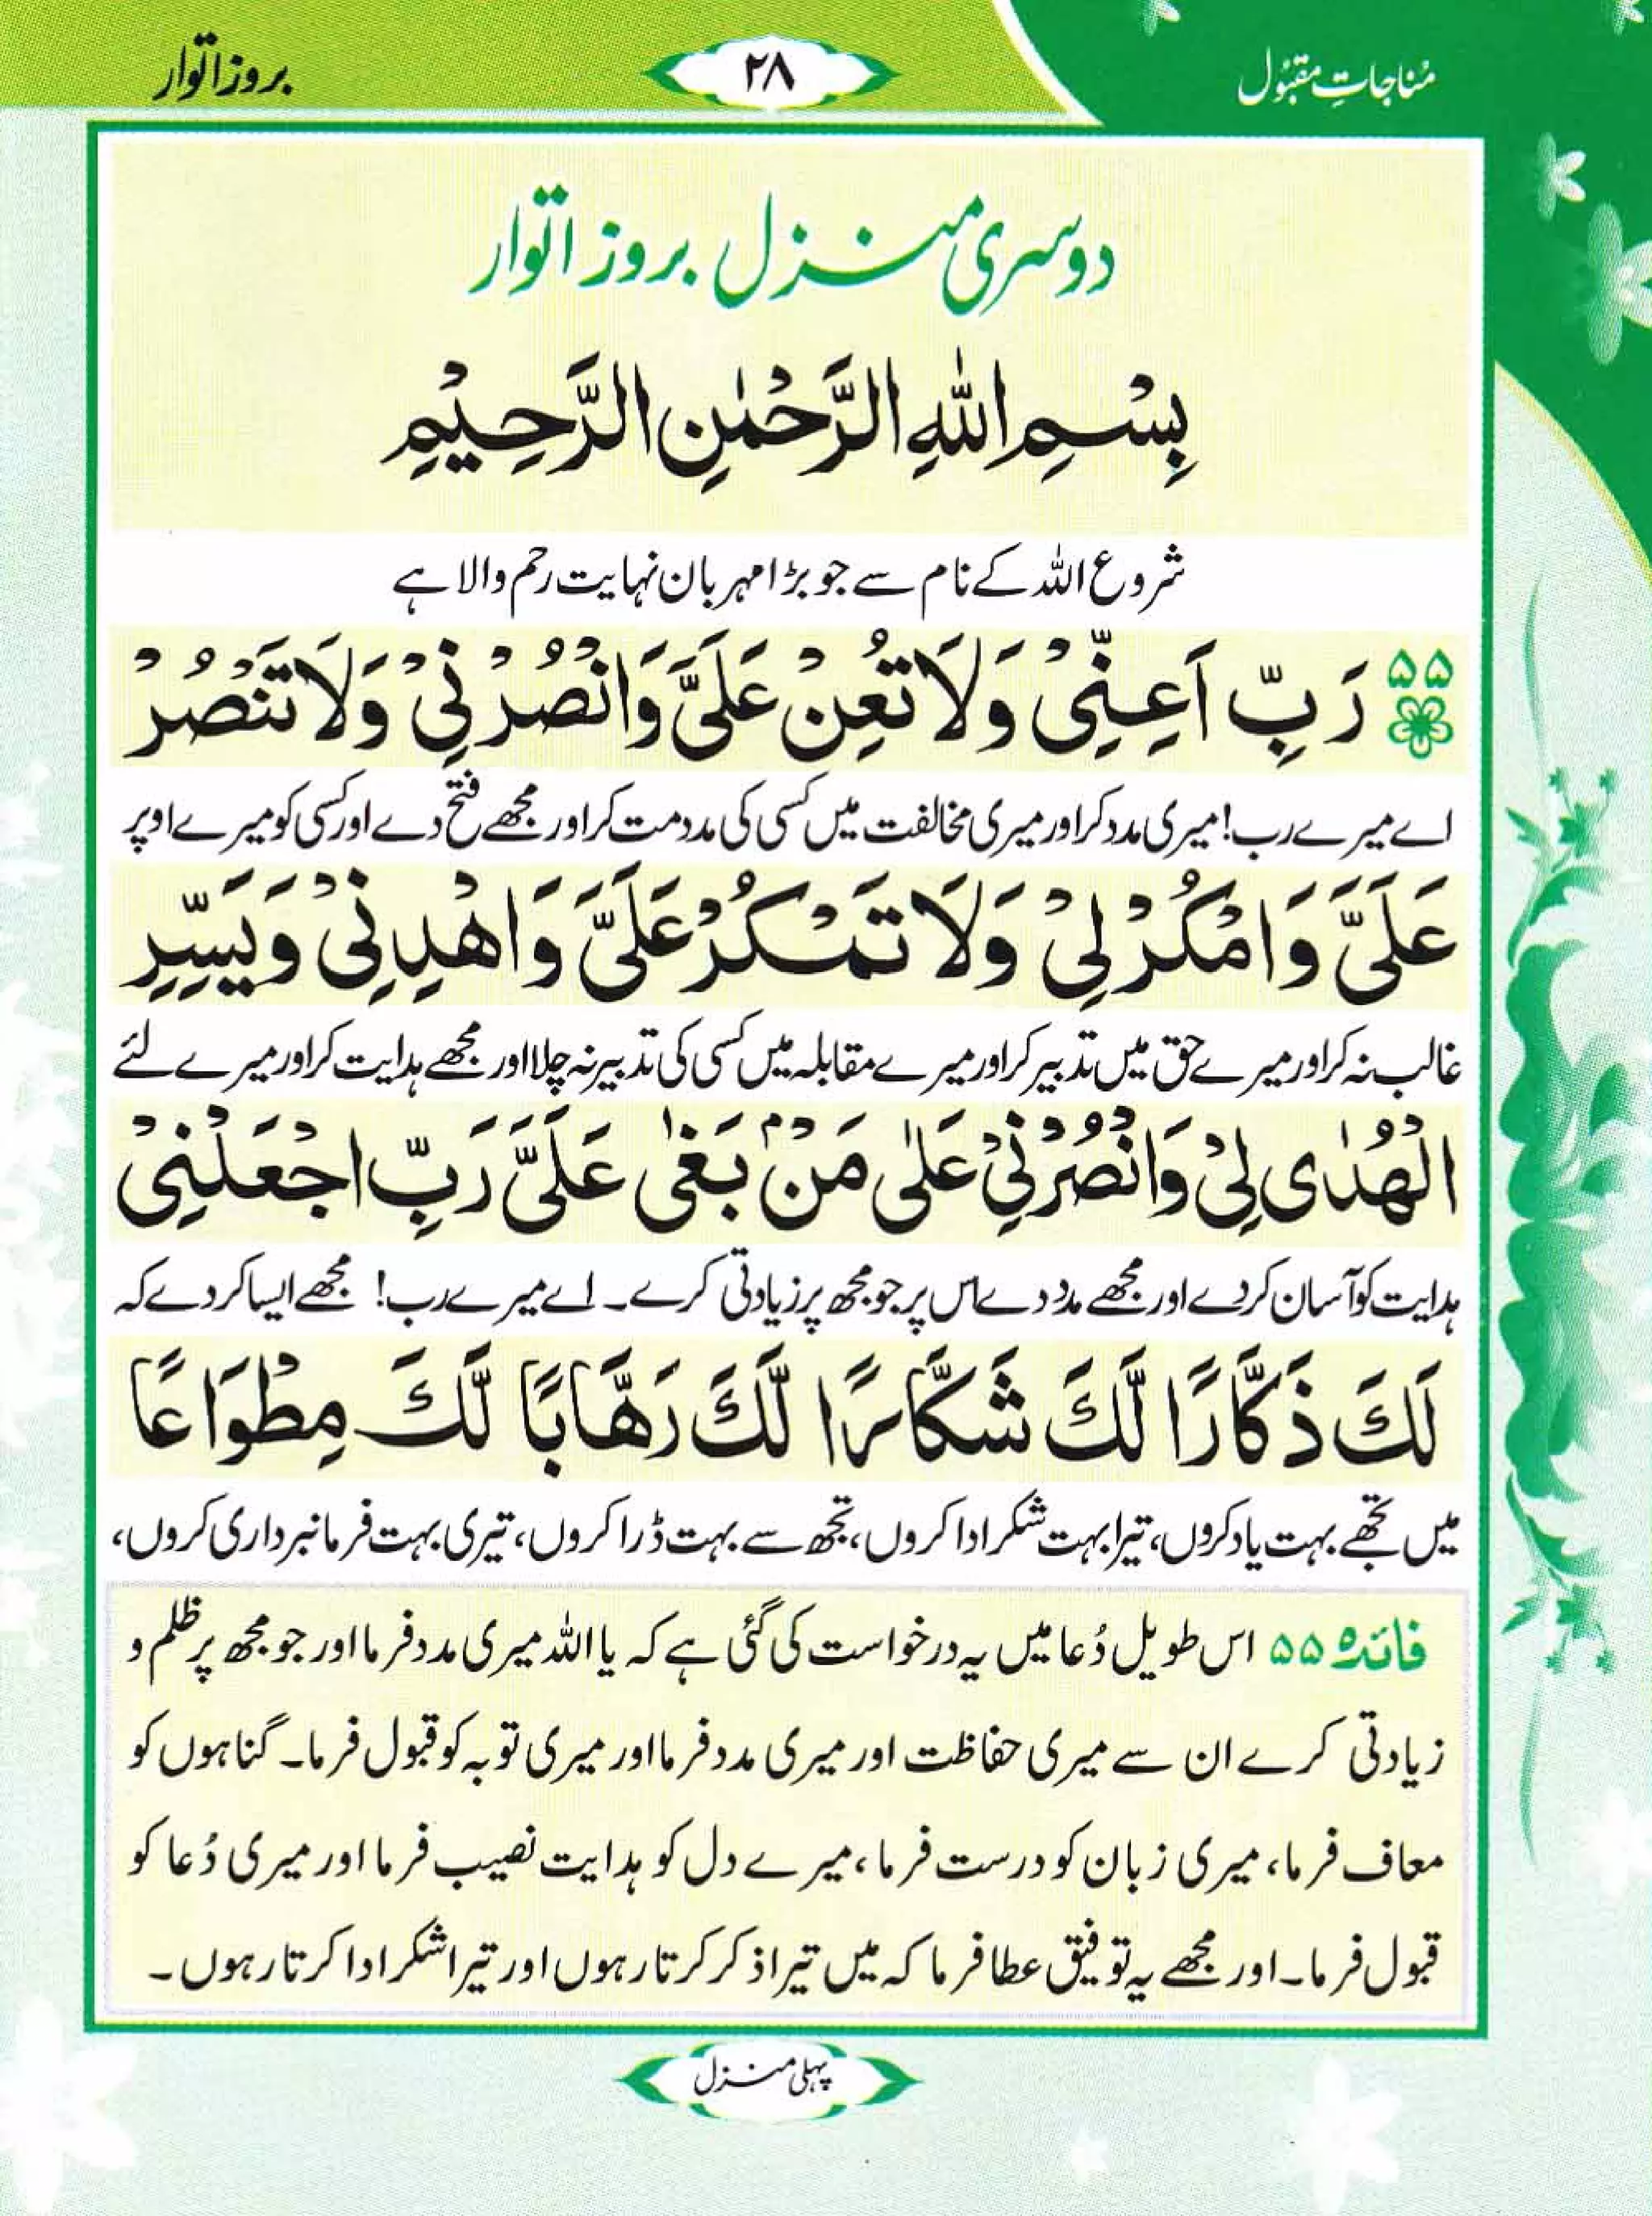 مُناجاتِ مقبُول
۲۸
بروز اتوار
دوسری منزل بروز اتوار
بِسْمِ اللّٰهِ الرَّحْمٰنِ الرَّحِيْمِ
شروع اللہ کے نام سے جو بڑا مہربان نہایت رحم والا ہے
۵۵ رَبِّ اَعِنِّيْ وَلَا تُعِنْ عَلَيَّ وَانْصُرْنِيْ وَلَا تَنْصُرْ
اے میرے رب! میری مدد کر اور میری مخالفت میں کسی کی مدد مت کر اور مجھے فتح دے اور کسی کو میرے اوپر
عَلَيَّ وَامْكُرْ لِيْ وَلَا تَمْكُرْ عَلَيَّ وَاهْدِنِيْ وَيَسِّرِ
غالب نہ کر اور میرے حق میں تدبیر کر اور میرے مقابلہ میں کسی کی تدبیر نہ چلا اور مجھے ہدایت کر اور میرے لئے
الْهُدٰى لِيْ وَانْصُرْنِيْ عَلٰى مَنْۢ بَغٰى عَلَيَّ رَبِّ اجْعَلْنِيْ
ہدایت کو آسان کردے اور مجھے مدد دے اس پر جو مجھ پر زیادتی کرے۔ اے میرے رب! مجھے ایسا کردے کہ
لَكَ ذَكَّارًا لَّكَ شَكَّارًا لَّكَ رَهَّابًا لَّكَ مِطْوَاعًا
میں تجھے بہت یاد کروں، تیرا بہت شکر ادا کروں، تجھ سے بہت ڈرا کروں، تیری بہت فرمانبرداری کروں،
فائدہ ۵۵ اس طویل دُعا میں یہ درخواست کی گئی ہے کہ یا اللہ میری مدد فرما اور جو مجھ پر ظلم و
زیادتی کرے ان سے میری حفاظت اور میری مدد فرما اور میری توبہ کو قبول فرما۔ گناہوں کو
معاف فرما، میری زبان کو درست فرما، میرے دل کو ہدایت نصیب فرما اور میری دُعا کو
قبول فرما۔ اور مجھے یہ توفیق عطا فرما کہ میں تیرا ذکر کرتا رہوں اور تیرا شکر ادا کرتا رہوں۔
پہلی منزل